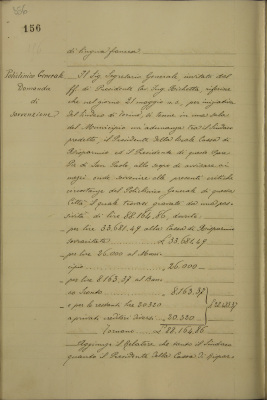 156
di lingua francese
Policlinico Generale
Domanda
di
sovvenzione
Il Sig. Segretario Generale, invitato dal
ff. di Presidente Cav. Ing. riferisce
che nel giorno 21 maggio u.s., per iniziativa
del Sindaco di Torino, si tenne in una sala
del Municipio un'adunanza tra il Sindaco
predetto, il Presidente della locale Cassa di
Risparmio ed il Presidente di questa Opera
Pia di San Paolo, allo scopo di avvisare ai
mezzi onde sovvenire alle presenti critiche
circostanze del Policlinico Generale di questa
Città, il quale trovasi gravato di
di lire 88.164,86, dovute
per lire 33.681,49 alla Cassa di Risparmio
£ 33.681,49
per lire 26.000 al Muni-
cipio " 26.000
per lire 8.163,37 al
" 8.163,37
e per le restanti lire 20320
a privati creditori diversi " 20.320
Tornano £ 88.164,86
Aggiunge il Relatore che tanto il Sindaco
quanto il Presidente della Cassa di Rispar-